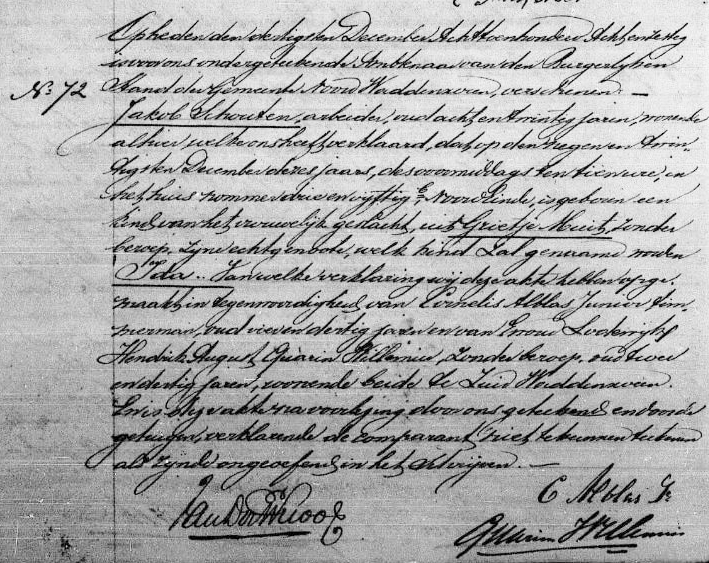 Op heden den dertigsten December Achttienhonderd Achtenzestig
voor ons ondergeteekende Ambtenaar van den Burgerlijken
Stand der Gemeente Noord Waddinxveen, verschenen. —
No. 72
Jakob Schouten, arbeider, oud acht en twintig jaren, wonende
alhier, welke ons heeft verklaard, dat op den negen en twin-
tigsten December dezes jaars, des voormiddags ten tien ure, in
het huis nommer drie en vijftig Noordeinde, is geboren een
kind van het vrouwelijk geslacht, uit Grietje Muit, zonder
beroep, zijne echtgenoote, welk kind zal genaamd worden
Ida.. Van welke verklaring wij deze akte hebben opge-
maakt in tegenwoordigheid van Cornelis Alblas Junior tim-
merman, oud vier en dertig jaren en van
Hendrik August Willemin, zonder beroep, oud twee
en dertig jaren, wonende beide te Zuid Waddinxveen.
En is deze akte na voorlezing door ons geteekend en door de
getuigen, verklarende de comparant niet te kunnen teekenen
als zijnde ongeoefend in het schrijven. —
C Alblas Jr